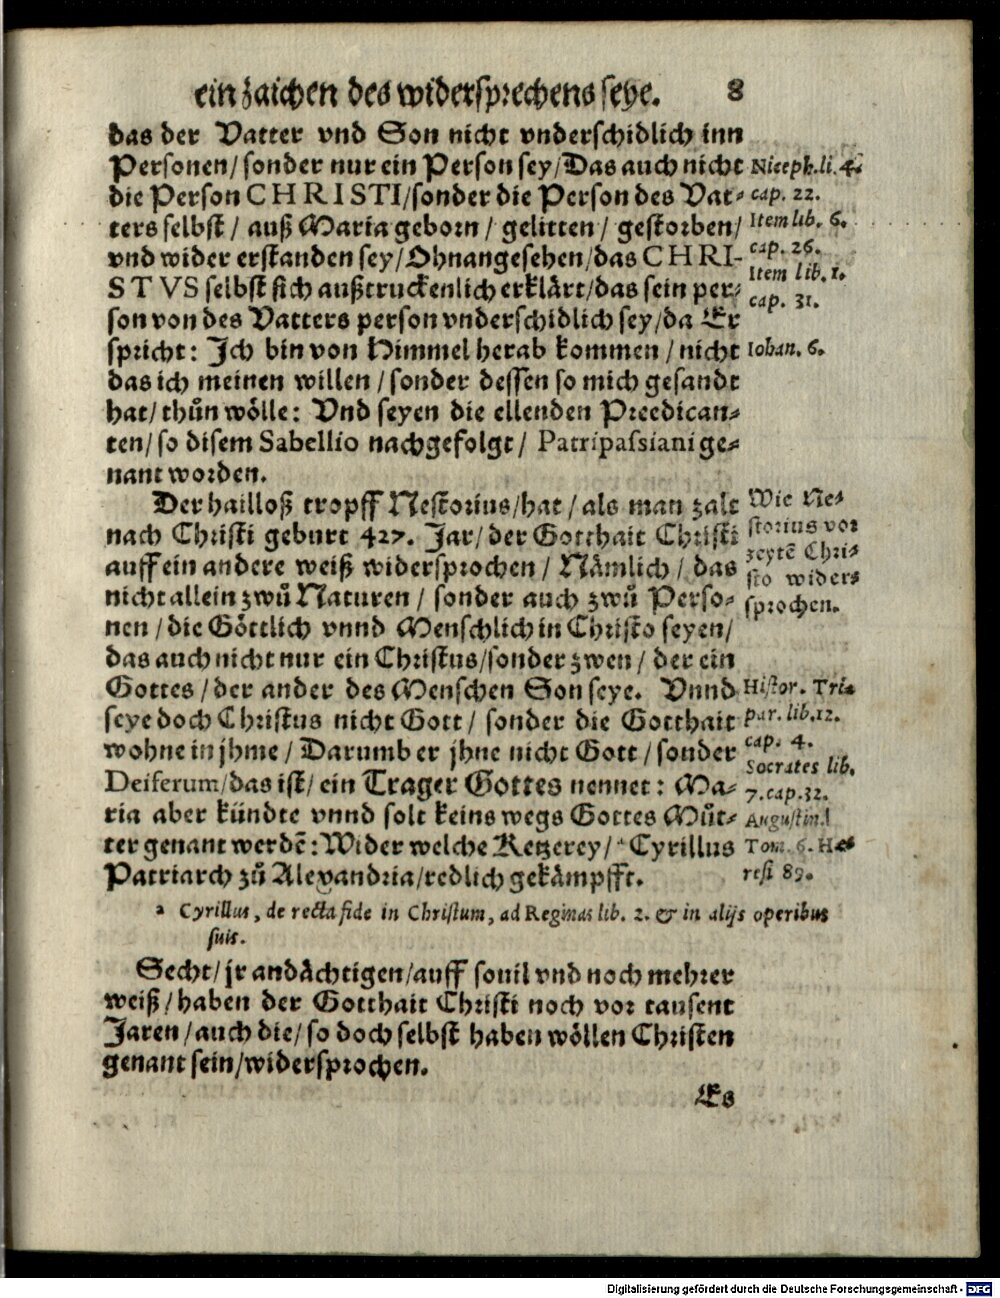 ein zaichen des widersprechens seye. 8
das der Vatter vnd Son nicht vnderschidlich inn
Personen/sonder nur ein Person sey/Das auch nicht
die Person CHRISTI/sonder die Person des Vat-
ters selbst / auß Maria geborn / gelitten / gestorben/
vnd wider erstanden sey/Ohnangesehen/das CHRI-
STVS selbst sich außtruckenlich erklärt/das sein per-
son von des Vatters person vnderschidlich sey/da Er
spricht: Jch bin von Himmel herab kommen / nicht
das ich meinen willen / sonder dessen so mich gesandt
hat/ thůn wölle: Vnd seyen die ellenden Preedican-
ten/ so disem Sabellio nachgefolgt / Patripassiani ge-
nant worden.
Niceph. li. 4.
cap. 22.
Item lib. 6.
cap. 26.
Item lib. 1.
cap. 31.
Iohan. 6.
Der hailloß tropff Nestorius/hat / als man zalt
nach Christi geburt 427. Jar/ der Gotthait Christi
auff ein andere weiß widersprochen / Nämlich / das
nicht allein zwů Naturen / sonder auch zwů Perso-
nen / die Göttlich vnnd Menschlich in Christo seyen/
das auch nicht nur ein Christus/sonder zwen / der ein
Gottes / der ander des Menschen Son seye. Vnnd
seye doch Christus nicht Gott / sonder die Gotthait
wohne in jhme / Darumb er jhne nicht Gott / sonder
Deiferum/das ist/ ein Trager Gottes nennet: Ma-
ria aber kündte vnnd solt keins wegs Gottes Můt-
ter genant werdē: Wider welche Ketzerey/ ᵃ Cyrillus
Patriarch zů Alexandria/redlich gekämpfft.
Wie Ne-
storius vor
zeytē Chri-
sto wider-
sprochen.
Histor. Tri-
par. lib. 12.
cap. 4.
Socrates lib.
7. cap. 32.
Augustin.
Tom. 6. Hæ-
resi 89.
ᵃ Cyrillus, de recta fide in Christum, ad Reginas lib. 2. & in alijs operibus
suis.
Secht/ jr andächtigen/auff souil vnd noch mehrer
weiß / haben der Gotthait Christi noch vor tausent
Jaren / auch die/ so doch selbst haben wöllen Christen
genant sein/widersprochen.
Es
Digitalisierung gefördert durch die Deutsche Forschungsgemeinschaft - DFG